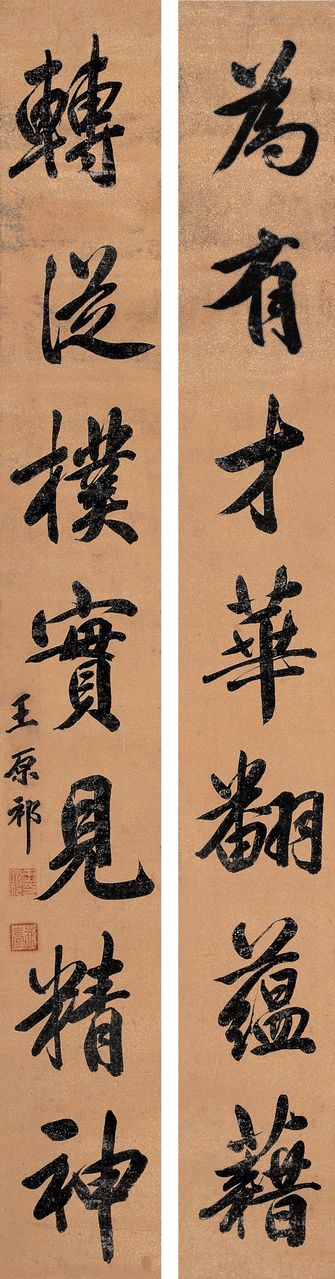 為有才華翻蘊藉
轉從樸實見精神
王原祁